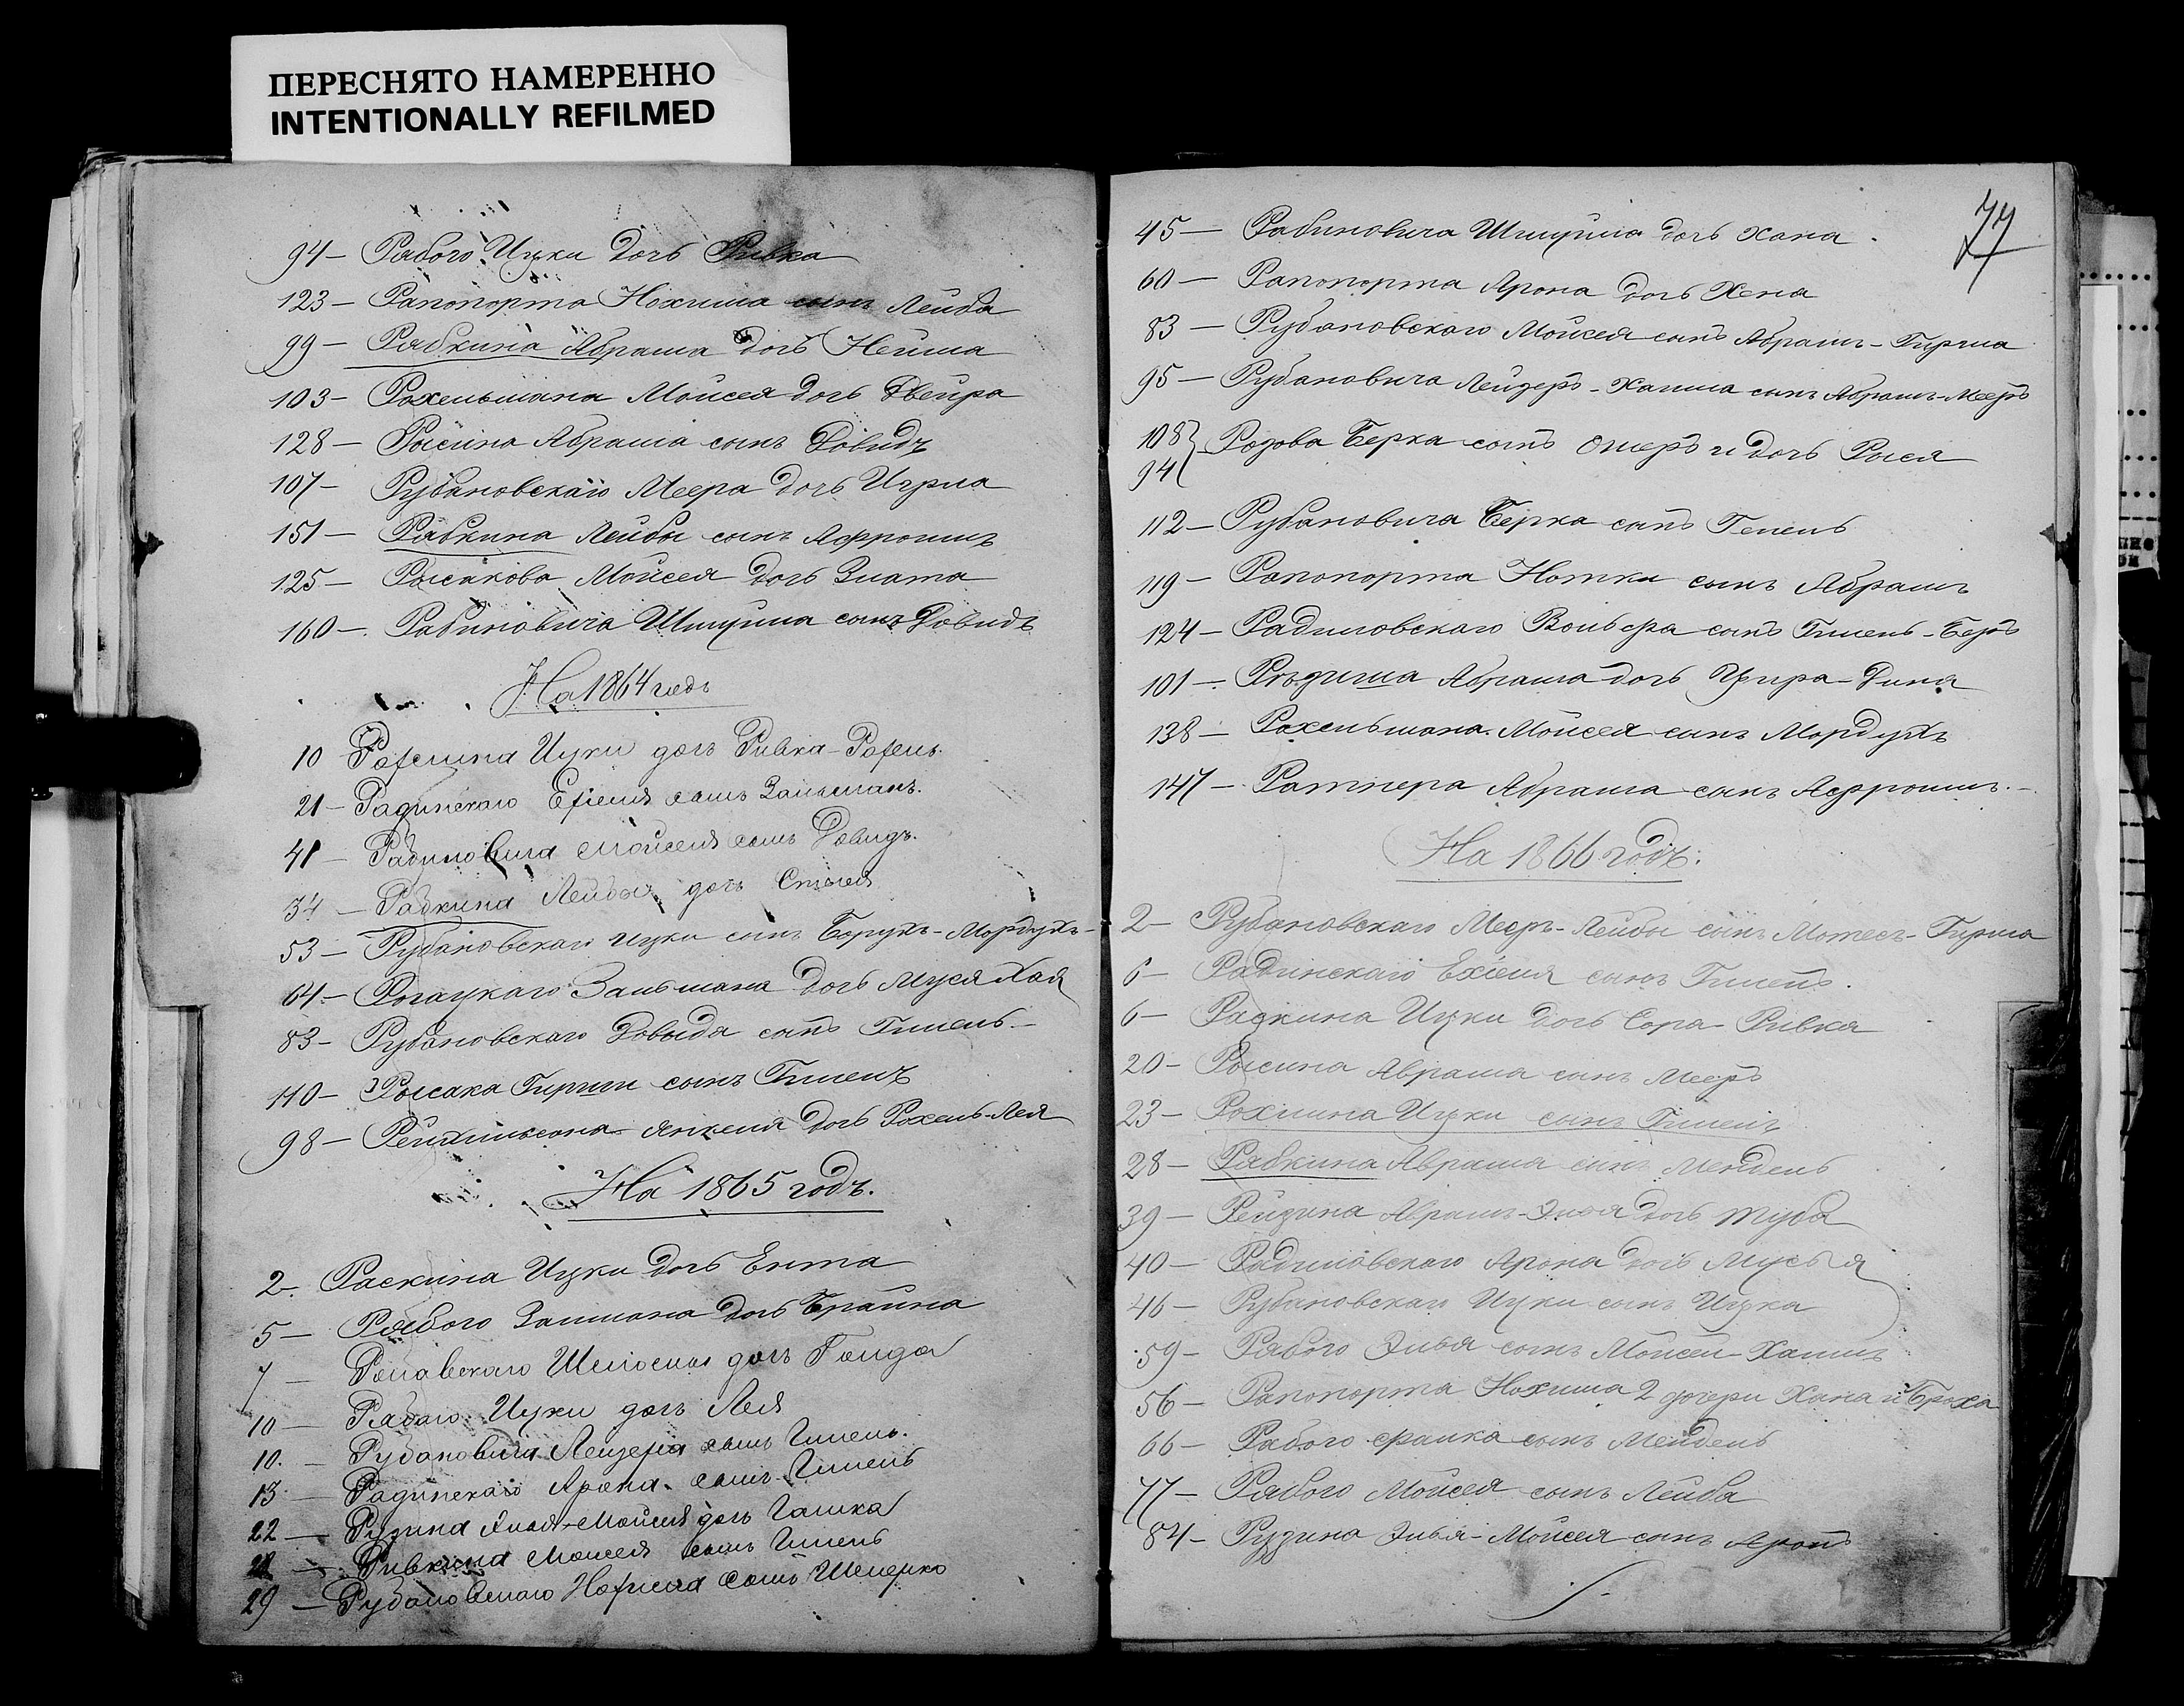 ПЕРЕСНЯТО НАМЕРЕННО
INTENTIONALLY REFILMED
94 — Рябого Ицки дочь Ривка
123 — Рапопорта Нохима сынъ Лейба
99 — Рябкина Абрама дочь Нейша
103 — Рохельмана Мойсея дочь Двейра
128 — Рысина Абрама сынъ Довидъ
107 — Рубановскаго Меера дочь
151 — Рябкина Лейбы сынъ Афроимъ
125 — Рысакова Мойсея дочь Злата
160 — Рабиновича Шмуйла сынъ Довидъ
На 1864 годъ
10 Рофлина Ицки дочь Ривка-Рофель
21 — Радинскаго Ефіеля сынъ Зальманъ.
41 — Рабиновича Мойсея сынъ Довидъ.
34 — Рабкина Лейбы дочь Стыся
53 — Рубановскаго Ицки сынъ Борухъ-Мордухъ
64 — Рогацкаго Зальмана дочь Муся Хая
83 — Рубановскаго Довыда сынъ Гилель
110 — Рысака Гирши сынъ Гилель
98 — Рейхильсона Янкеля дочь Рохель-Лея
На 1865 годъ.
2 — Раскина Ицки дочь Ента
5 — Рябого Залмана дочь Брайна
7 — Шліомы дочь
10 — Рябаго Ицки дочь Лея
10. — Рубановича Лейзера сынъ Гилель.
13 — Радинскаго Арона сынъ Гилель
22 — Рузина Элья-Мойсея дочь Гашка
28 — Ривкина Мойсея сынъ Гилель
29 — Рубановскаго Нофима сынъ Шмерко
77
45 — Рабиновича Шмуйла дочь Хана.
60 — Рапопорта Арона дочь Хена
83 — Рубановскаго Мойсея сынъ Абрамъ-Гирша
95 — Рубановича Лейзеръ-Хаима сынъ Абрамъ-Мееръ
108 } Розова Берка сынъ Омеръ и дочь Рыся
94
112 — Рубановича Берка сынъ Гецель
119 — Рапопорта Нотки сынъ Абрамъ
124 — Радиловскаго Вольфа сынъ Гилель-Беръ
101 — Абрама дочь Ципра-Дина
138 — Рохельмана Мойсея сынъ Мордухъ
147 — Ратнера Абрама сынъ Афроимъ.
На 1866 годъ.
2 — Рубановскаго Мееръ-Лейбы сынъ Мотесъ-Гирша
6 — Радинскаго Ехіеля сынъ Гилель.
6 — Раскина Ицки дочь Сора-Ривка
20 — Рысина Абрама сынъ Мееръ
23 — Рохлина Ицки сынъ Гилель
28 — Рябкина Абрама сынъ Мендель
39 — Рейзина Абрамъ-Элья дочь Туба
40 — Радиловскаго Арона дочь Мусья
46 — Рубановскаго Ицки сынъ Ицка
59 — Рябого Элья сынъ Мойсей-Хаимъ
56 — Рапопорта Нохима 2 дочери Хана и Броха
66 — Рябого сынъ Мендель
77 — Рябого Мойсея сынъ Лейба
84 — Рузина Элья-Мойсея сынъ Аронъ